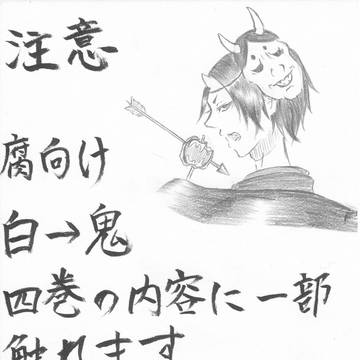 注意
腐向け
白→鬼
四巻の内容に一部
触れます